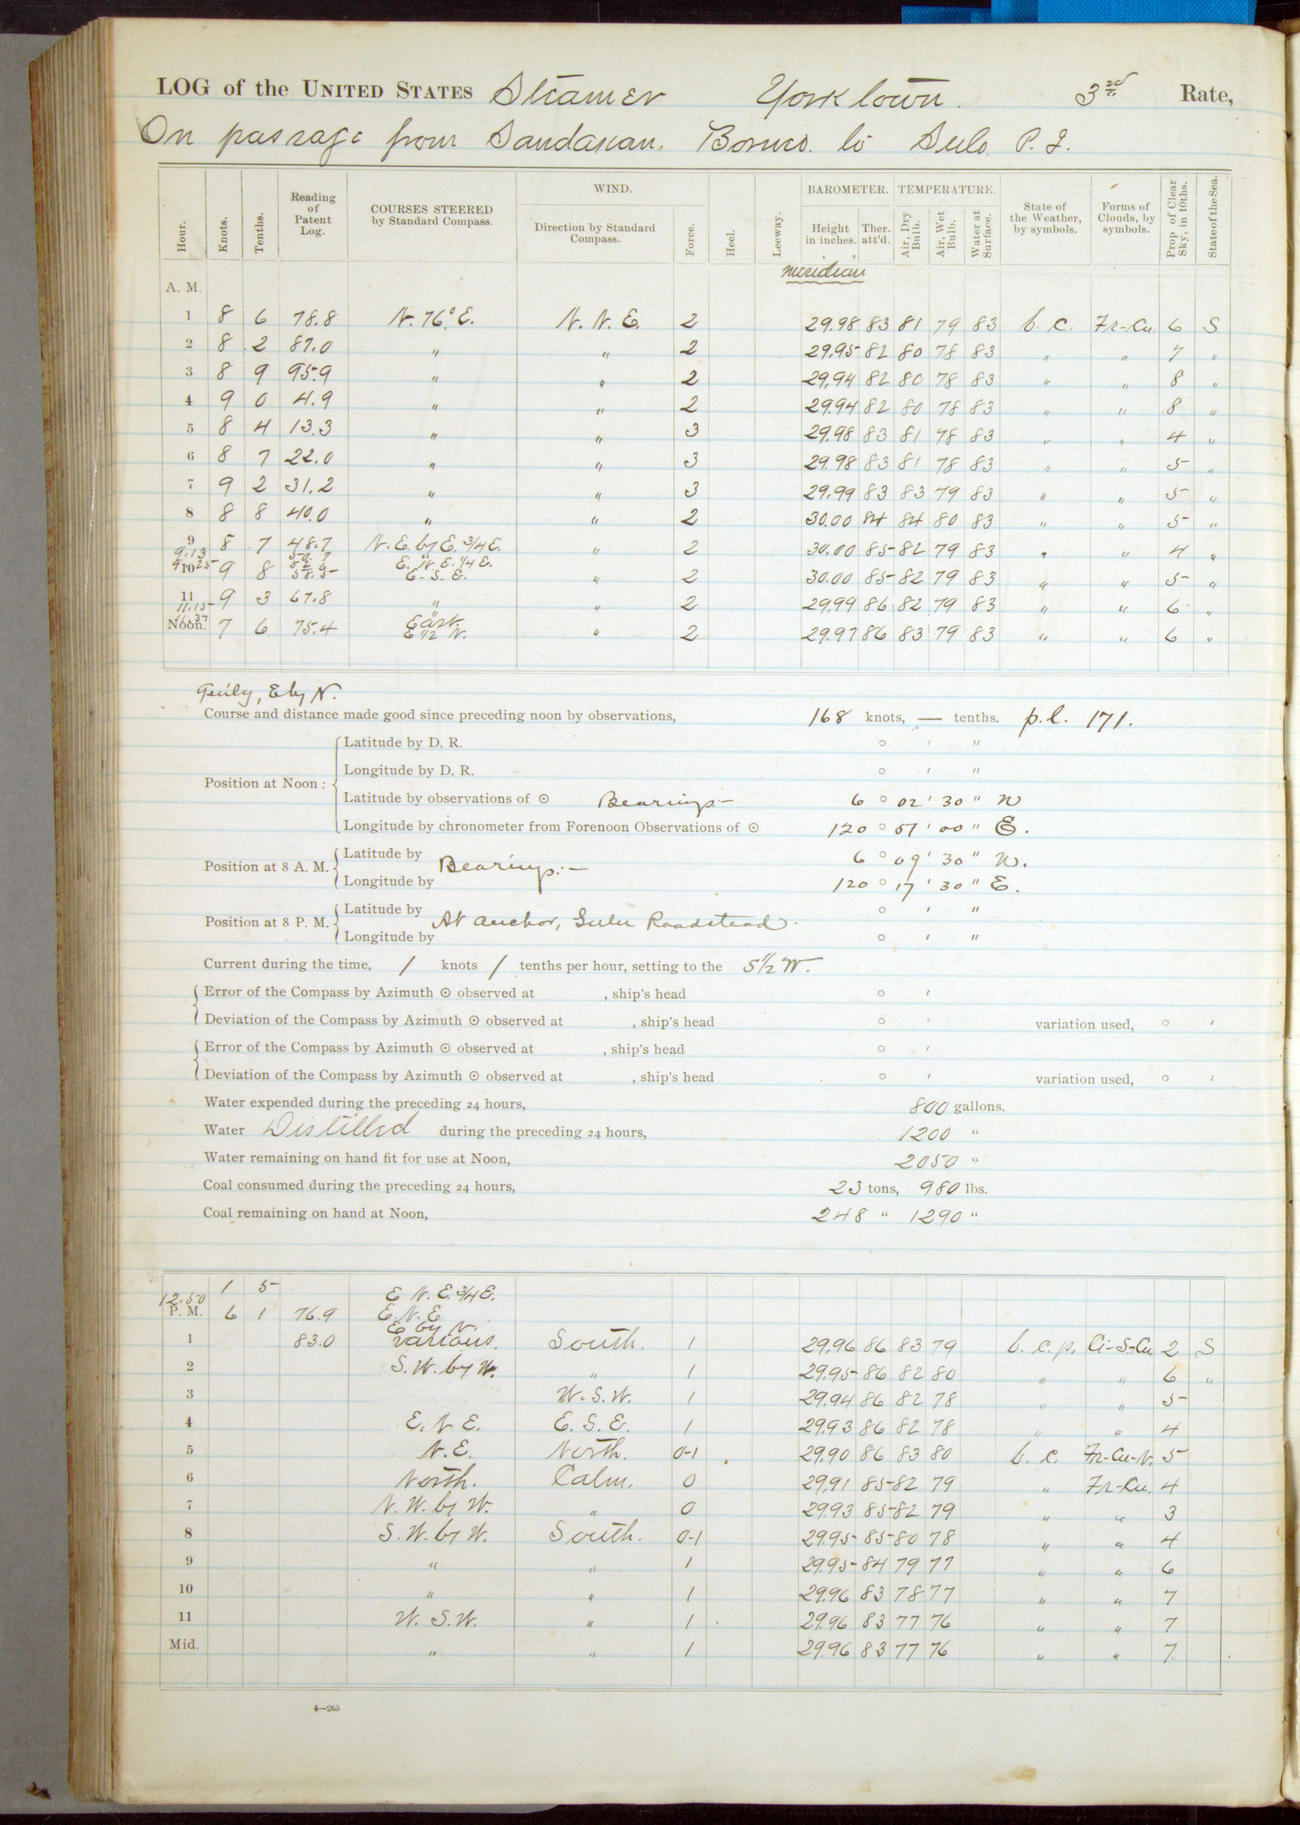 LOG of the UNITED STATES Steamer Yorktown. 3rd Rate,
On passage from Sandakan, Borneo to Sulu P. I.
Hour. Knots. Tenths. Reading of Patent Log. COURSES STEERED by Standard Compass. WIND. Direction by Standard Compass. Force. Heel. Leeway. BAROMETER. Height in inches. Ther. att'd. TEMPERATURE. Air, Dry Bulb. Air, Wet Bulb. Water at Surface. State of the Weather, by symbols. Forms of Clouds, by symbols. Prop of Clear Sky, in 10ths. State of the Sea.
meridian
A. M.
1 8 6 78.8 N. 76° E. N. N. E. 2 29.98 83 81 79 83 b. c. Fr-Cu. 6 S
2 8 2 87.0 " " 2 29.95 82 80 78 83 " " 7 "
3 8 9 95.9 " " 2 29.94 82 80 78 83 " " 8 "
4 9 0 4.9 " " 2 29.94 82 80 78 83 " " 8 "
5 8 4 13.3 " " 3 29.98 83 81 78 83 " " 4 "
6 8 7 22.0 " " 3 29.98 83 81 78 83 " " 5 "
7 9 2 31.2 " " 3 29.99 83 83 79 83 " " 5 "
8 8 8 40.0 " " 2 30.00 84 84 80 83 " " 5 "
9 8 7 48.7 N. E. by E. 3/4 E. " 2 30.00 85 82 79 83 " " 4 "
9.13 50.7 E. N. E. 1/4 E.
9.25
10 9 8 58.5 E. S. E. " 2 30.00 85 82 79 83 " " 5 "
11 9 3 67.8 " " 2 29.99 86 82 79 83 " " 6 "
11.15 East.
11.37
Noon. 7 6 75.4 E 1/2 N. " 2 29.97 86 83 79 83 " " 6 "
E by N.
Course and distance made good since preceding noon by observations, 168 knots, — tenths. p. l. 171.
Position at Noon:
Latitude by D. R. ° ' "
Longitude by D. R. ° ' "
Latitude by observations of ☉ Bearings— 6 ° 02 ' 30 " N
Longitude by chronometer from Forenoon Observations of ☉ 120 ° 51 ' 00 " E.
Position at 8 A. M. Bearings.—
Latitude by 6 ° 09 ' 30 " N.
Longitude by 120 ° 17 ' 30 " E.
Position at 8 P. M. At anchor, Sulu Roadstead.
Latitude by ° ' "
Longitude by ° ' "
Current during the time, / knots / tenths per hour, setting to the S 1/2 W.
Error of the Compass by Azimuth ☉ observed at , ship's head ° '
Deviation of the Compass by Azimuth ☉ observed at , ship's head ° ' variation used, ° '
Error of the Compass by Azimuth ☉ observed at , ship's head ° '
Deviation of the Compass by Azimuth ☉ observed at , ship's head ° ' variation used, ° '
Water expended during the preceding 24 hours, 800 gallons.
Water Distilled during the preceding 24 hours, 1200 "
Water remaining on hand fit for use at Noon, 2050 "
Coal consumed during the preceding 24 hours, 23 tons, 980 lbs.
Coal remaining on hand at Noon, 248 " 1290 "
1 5 E N. E. 3/4 E.
12.50
P. M. 6 1 76.9 E. N. E
E by N.
1 83.0 Various. South. 1 29.96 86 83 79 b. c. p. Ci-S-Cu 2 S
2 S. W. by W. " 1 29.95 86 82 80 " " 6 "
3 W. S. W. 1 29.94 86 82 78 " " 5
4 E. N. E. E. S. E. 1 29.93 86 82 78 " " 4
5 N. E. North. 0-1 29.90 86 83 80 b. c. Fr-Cu-N. 5
6 North. Calm. 0 29.91 85 82 79 " Fr-Cu. 4
7 N. W. by W. " 0 29.93 85 82 79 " " 3
8 S. W. by W. South. 0-1 29.95 85 80 78 " " 4
9 " " 1 29.95 84 79 77 " " 6
10 " " 1 29.96 83 78 77 " " 7
11 W. S. W. " 1 29.96 83 77 76 " " 7
Mid. " " 1 29.96 83 77 76 " " 7
4—265